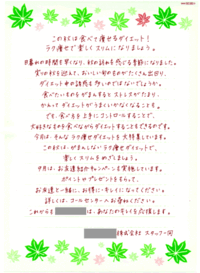 この秋は食べて痩せるダイエット!
ラク痩せで楽しくスリムになりましょう。
日暮れの時間も早くなり、秋の訪れを感じる季節になりました。
実りの秋を迎えて、おいしい旬のものがたくさん出回り、
ダイエット中の誘惑も多いのではないでしょうか。
食べたいものをがまんするとストレスがたまり、
かえってダイエットがうまくいかなくなることも。
でも、食べ方を上手にコントロールすることで、
大好きなものを食べながらダイエットすることもできるのです。
今回は、そんなラク痩せダイエットを大特集しています。
この秋は、がまんしないラク痩せダイエットで、
楽しくスリムをめざしましょう。
今月は、お友達紹介キャンペーンを実施しています。
ポイントやプレゼントもらって、
お友達と一緒に、お得にキレイになってください。
詳しくは、コールセンターにお尋ねください。
これからも は、あなたのキレイを応援します。
株式会社 スタッフ一同